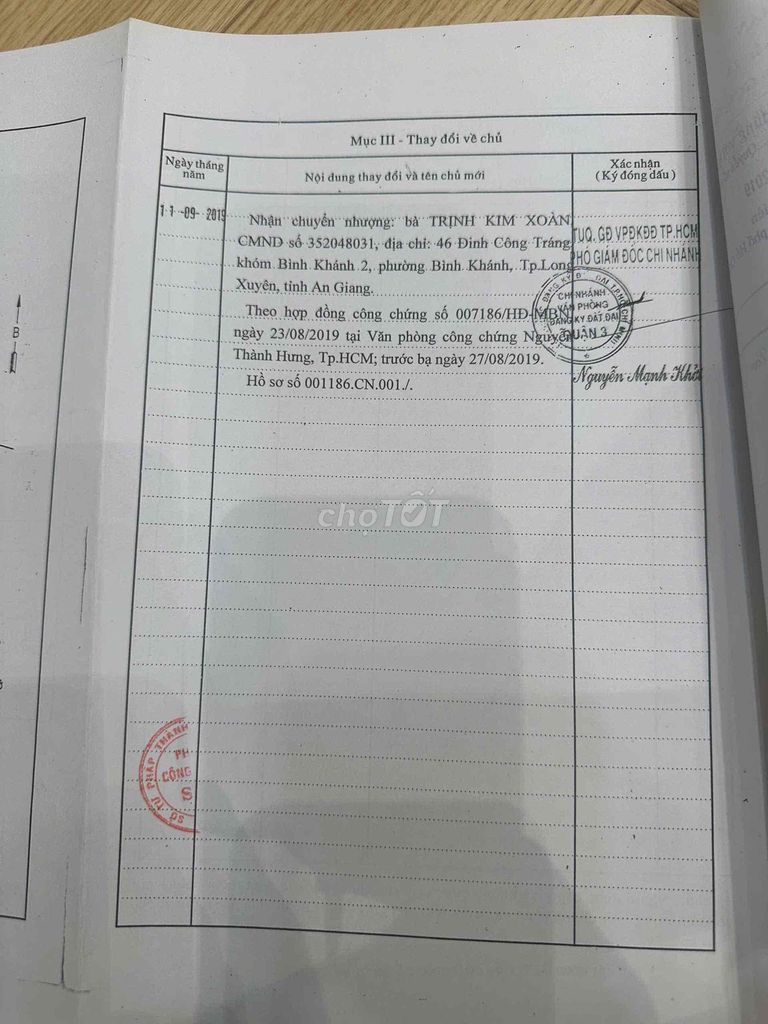 Mục III - Thay đổi về chủ
Ngày tháng năm
Nội dung thay đổi và tên chủ mới
Xác nhận
( Ký đóng dấu )
11 -09- 2019
Nhận chuyển nhượng: bà TRỊNH KIM XOÀN,
CMND số 352048031, địa chỉ: 46 Đinh Công Tráng,
khóm Bình Khánh 2, phường Bình Khánh, Tp.Long
Xuyên, tỉnh An Giang.
Theo hợp đồng công chứng số 007186/HĐ-MBN
ngày 23/08/2019 tại Văn phòng công chứng Nguyễn
Thành Hưng, Tp.HCM; trước bạ ngày 27/08/2019.
Hồ sơ số 001186.CN.001./.
TUQ. GĐ VPĐKĐĐ TP.HCM
PHÓ GIÁM ĐỐC CHI NHÁNH
CHI NHÁNH
VĂN PHÒNG
ĐĂNG KÝ ĐẤT ĐAI
QUẬN 3
Nguyễn Mạnh Khởi
choTỐT
SỞ TƯ PHÁP THÀNH
PH
CÔNG
S
B